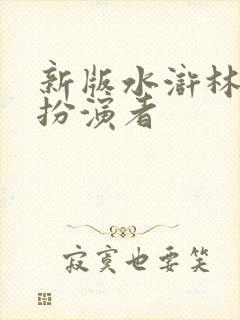 新版水浒林
扮演者
寂寞也要笑